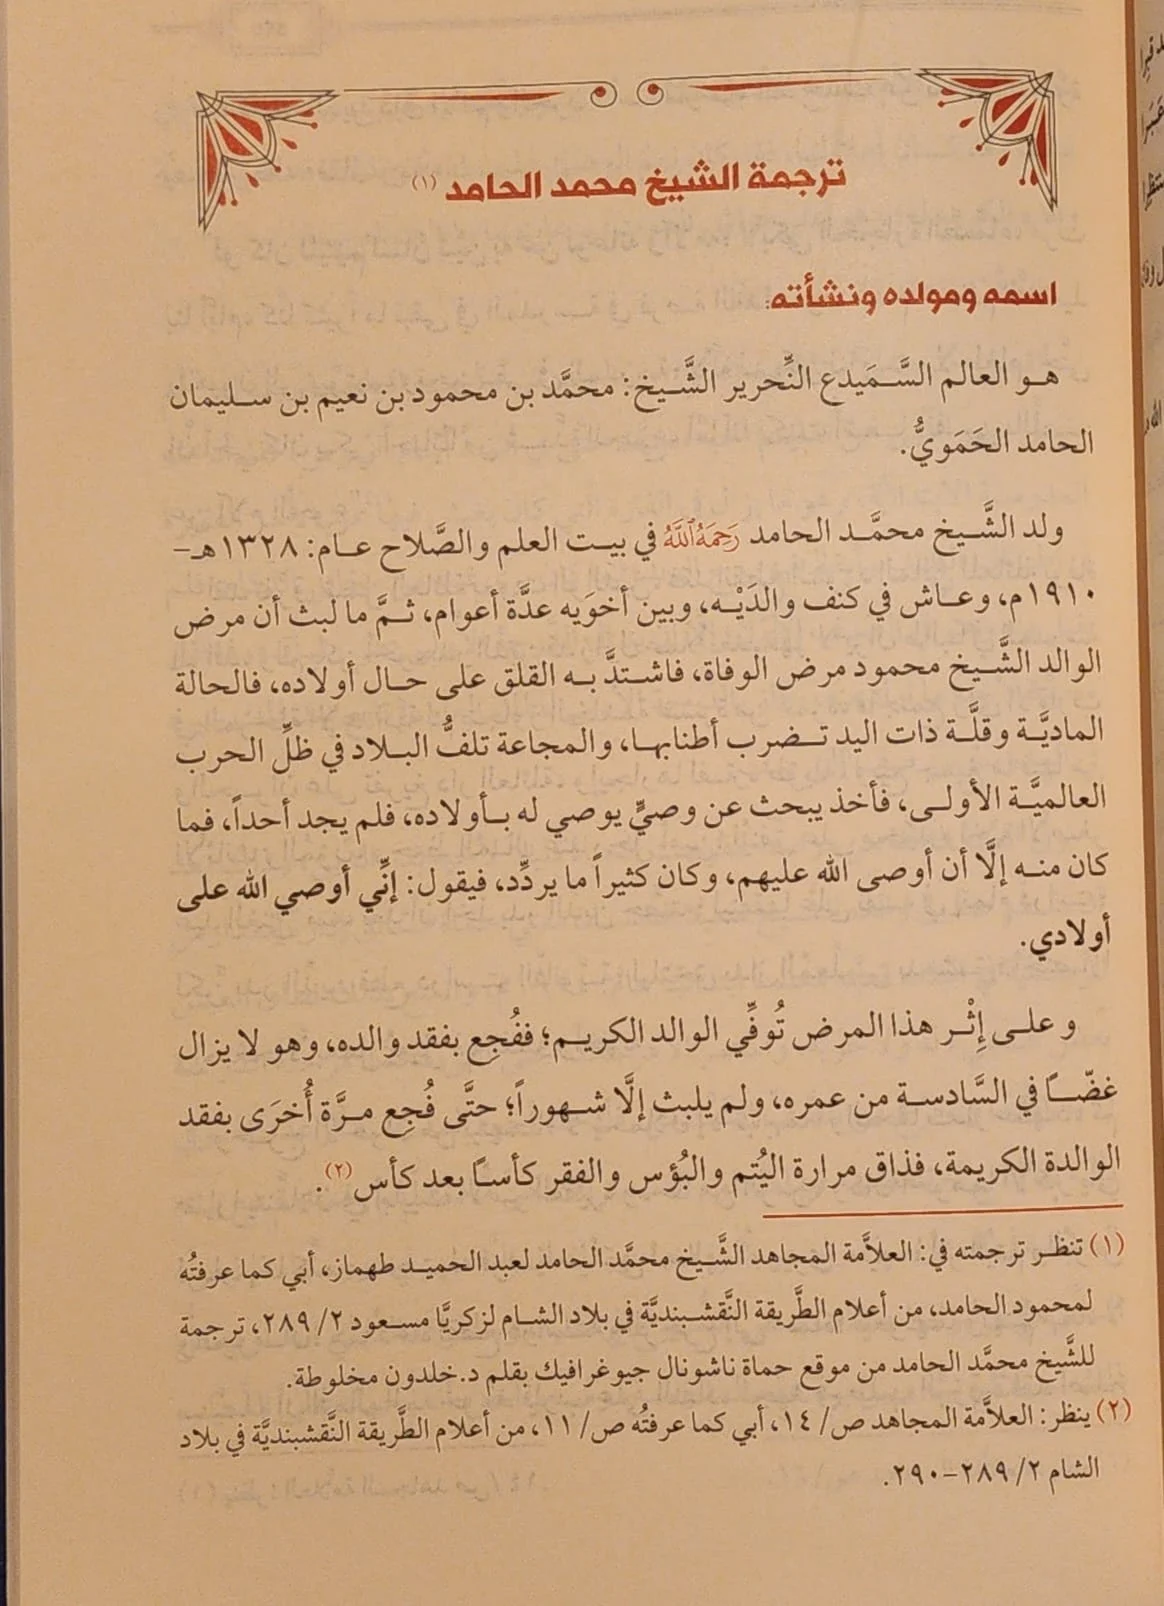 ترجمة الشيخ محمد الحامد (١)
اسمه ومولده ونشأته:
هو العالم السَّمَيدع النِّحرير الشَّيخ: محمَّد بن محمود بن نعيم بن سليمان
الحامد الحَمَويُّ.
ولد الشَّيخ محمَّد الحامد رَحِمَهُ ٱللَّهُ في بيت العلم والصَّلاح عام: ١٣٢٨هـ-
١٩١٠م، وعاش في كنف والدَيْه، وبين أخوَيه عدَّة أعوام، ثمَّ ما لبث أن مرض
الوالد الشَّيخ محمود مرض الوفاة، فاشتدَّ به القلق على حال أولاده، فالحالة
الماديَّة وقلَّة ذات اليد تضرب أطنابها، والمجاعة تلفُّ البلاد في ظلِّ الحرب
العالميَّة الأولى، فأخذ يبحث عن وصيٍّ يوصي له بأولاده، فلم يجد أحداً، فما
كان منه إلَّا أن أوصى الله عليهم، وكان كثيراً ما يردِّد، فيقول: إنِّي أوصي الله على
أولادي.
وعلى إِثْر هذا المرض تُوفِّي الوالد الكريم؛ ففُجِع بفقد والده، وهو لا يزال
غضّاً في السَّادسة من عمره، ولم يلبث إلَّا شهوراً؛ حتَّى فُجِع مرَّة أُخرَى بفقد
الوالدة الكريمة، فذاق مرارة اليُتم والبُؤس والفقر كأساً بعد كأس (٢).
(١) تنظر ترجمته في: العلاَّمة المجاهد الشَّيخ محمَّد الحامد لعبد الحميد طهماز، أبي كما عرفتُه
لمحمود الحامد، من أعلام الطَّريقة النَّقشبنديَّة في بلاد الشام لزكريَّا مسعود ٢/ ٢٨٩، ترجمة
للشَّيخ محمَّد الحامد من موقع حماة ناشونال جيوغرافيك بقلم د.خلدون مخلوطة.
(٢) ينظر: العلاَّمة المجاهد ص/ ١٤، أبي كما عرفتُه ص/ ١١، من أعلام الطَّريقة النَّقشبنديَّة في بلاد
الشام ٢/ ٢٨٩-٢٩٠.